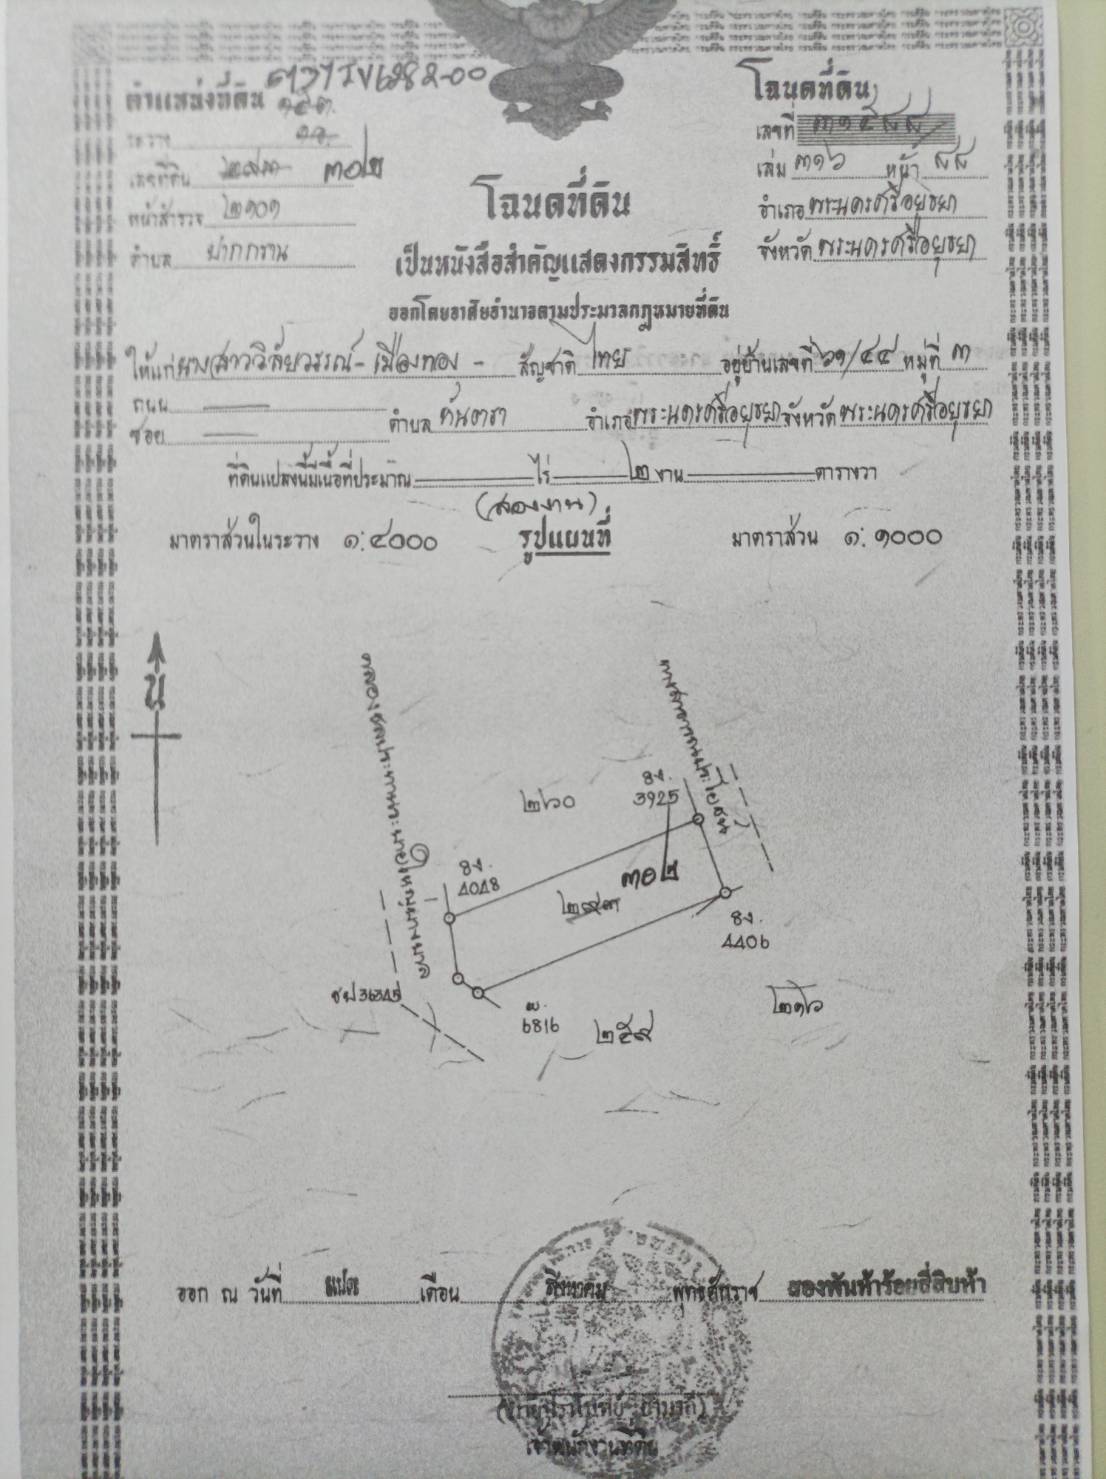 ตำแหน่งที่ดิน
โฉนดที่ดิน
ระวาง
เลขที่ ๓๑๕๘๘
เลขที่ดิน ๒๙๓ ๓๐๒
เล่ม ๓๑๖ หน้า ๘๘
หน้าสำรวจ ๒๑๐๑
อำเภอ พระนครศรีอยุธยา
ตำบล ปากกราน
จังหวัด พระนครศรีอยุธยา
โฉนดที่ดิน
เป็นหนังสือสำคัญแสดงกรรมสิทธิ์
ออกโดยอาศัยอำนาจตามประมวลกฎหมายที่ดิน
ให้แก่ นางสาววิลัยวรรณ - เมืองทอง - สัญชาติ ไทย อยู่บ้านเลขที่ ๖๑/๔๔ หมู่ที่ ๓
ถนน
ซอย ตำบล หันตรา อำเภอ พระนครศรีอยุธยา จังหวัด พระนครศรีอยุธยา
ที่ดินแปลงนี้มีเนื้อที่ประมาณ ไร่ ๒ งาน ตารางวา
(สองงาน)
มาตราส่วนในระวาง ๑:๔๐๐๐ รูปแผนที่ มาตราส่วน ๑:๑๐๐๐
น
๒๖๐
8ง.
3925
8ง.
4048
๓๐๒
๒๙๓
8ง.
4406
6816
๒๕๙
๒๑๖
ออก ณ วันที่ แปด เดือน สิงหาคม พุทธศักราช สองพันห้าร้อยสี่สิบห้า
เจ้าพนักงานที่ดิน